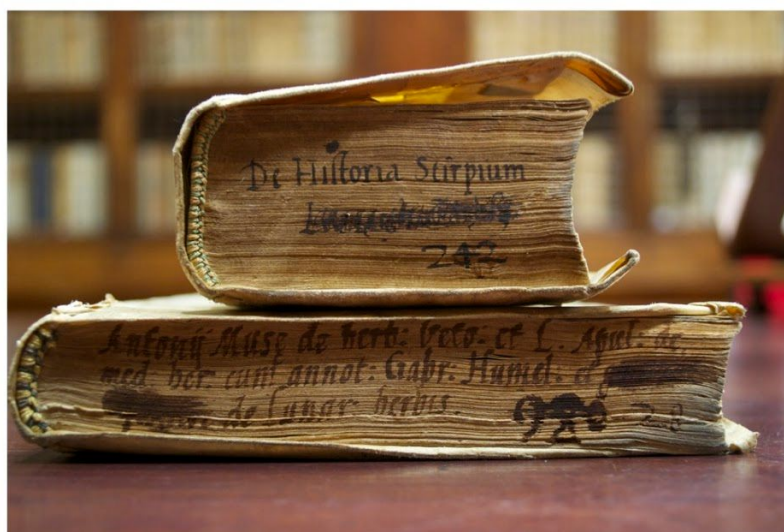 De Historia Stirpium
242
Antonij Musę de herb: Veto: et L. Apul: de
med her: cum annot: Gabr: Humel: et
de Lunar: herbis.
28